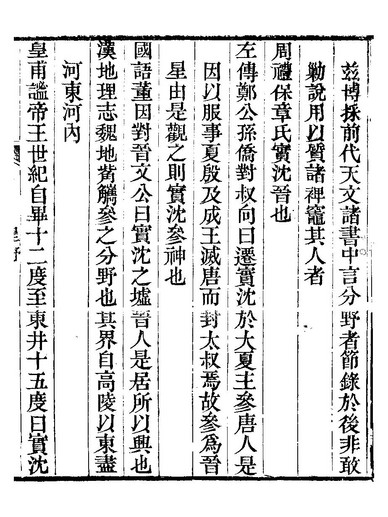 茲博採前代天文諸書中言分野者節錄於後非敢
勦說用以質諸裨竈其人者
周禮保章氏實沈晉也
左傳鄭公孫僑對叔向曰遷實沈於大夏主參唐人是
因以服事夏殷及成王滅唐而封太叔焉故參爲晉
星由是觀之則實沈參神也
國語董因對晉文公曰實沈之墟晉人是居所以興也
漢地理志魏地觜觿參之分野也其界自高陵以東盡
河東河內
皇甫謐帝王世紀自畢十二度至東井十五度曰實沈
星野